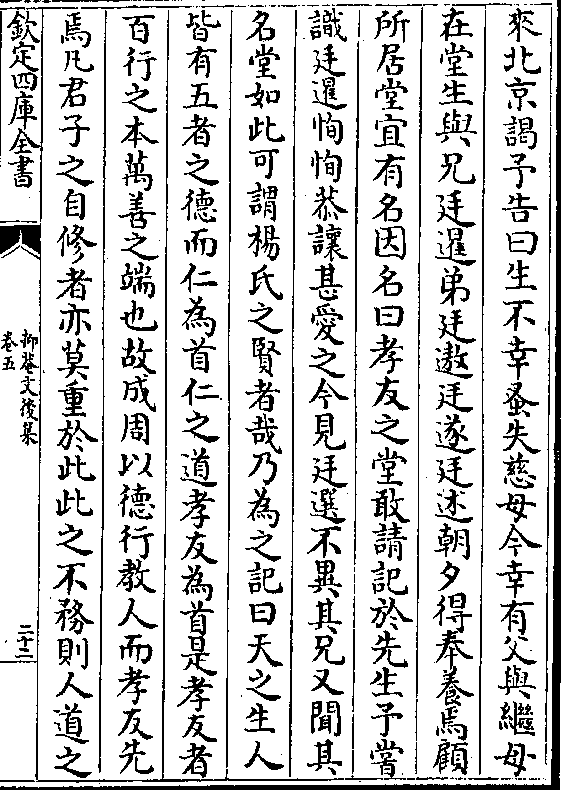 來北京謁予告曰生不幸蚤失慈母今幸有父與繼母
在堂生與兄廷暹弟廷遨廷遂廷述朝夕得奉養焉顧
所居堂宜有名因名曰孝友之堂敢請記於先生予嘗
識廷暹恂恂恭讓甚愛之今見廷選不異其兄又聞其
名堂如此可謂楊氏之賢者哉乃為之記曰天之生人
皆有五者之德而仁為首仁之道孝友為首是孝友者
百行之本萬善之端也故成周以德行教人而孝友先
焉凡君子之自修者亦莫重於此此之不務則人道之
欽定四庫全書
抑菴文後集
卷五
二十二